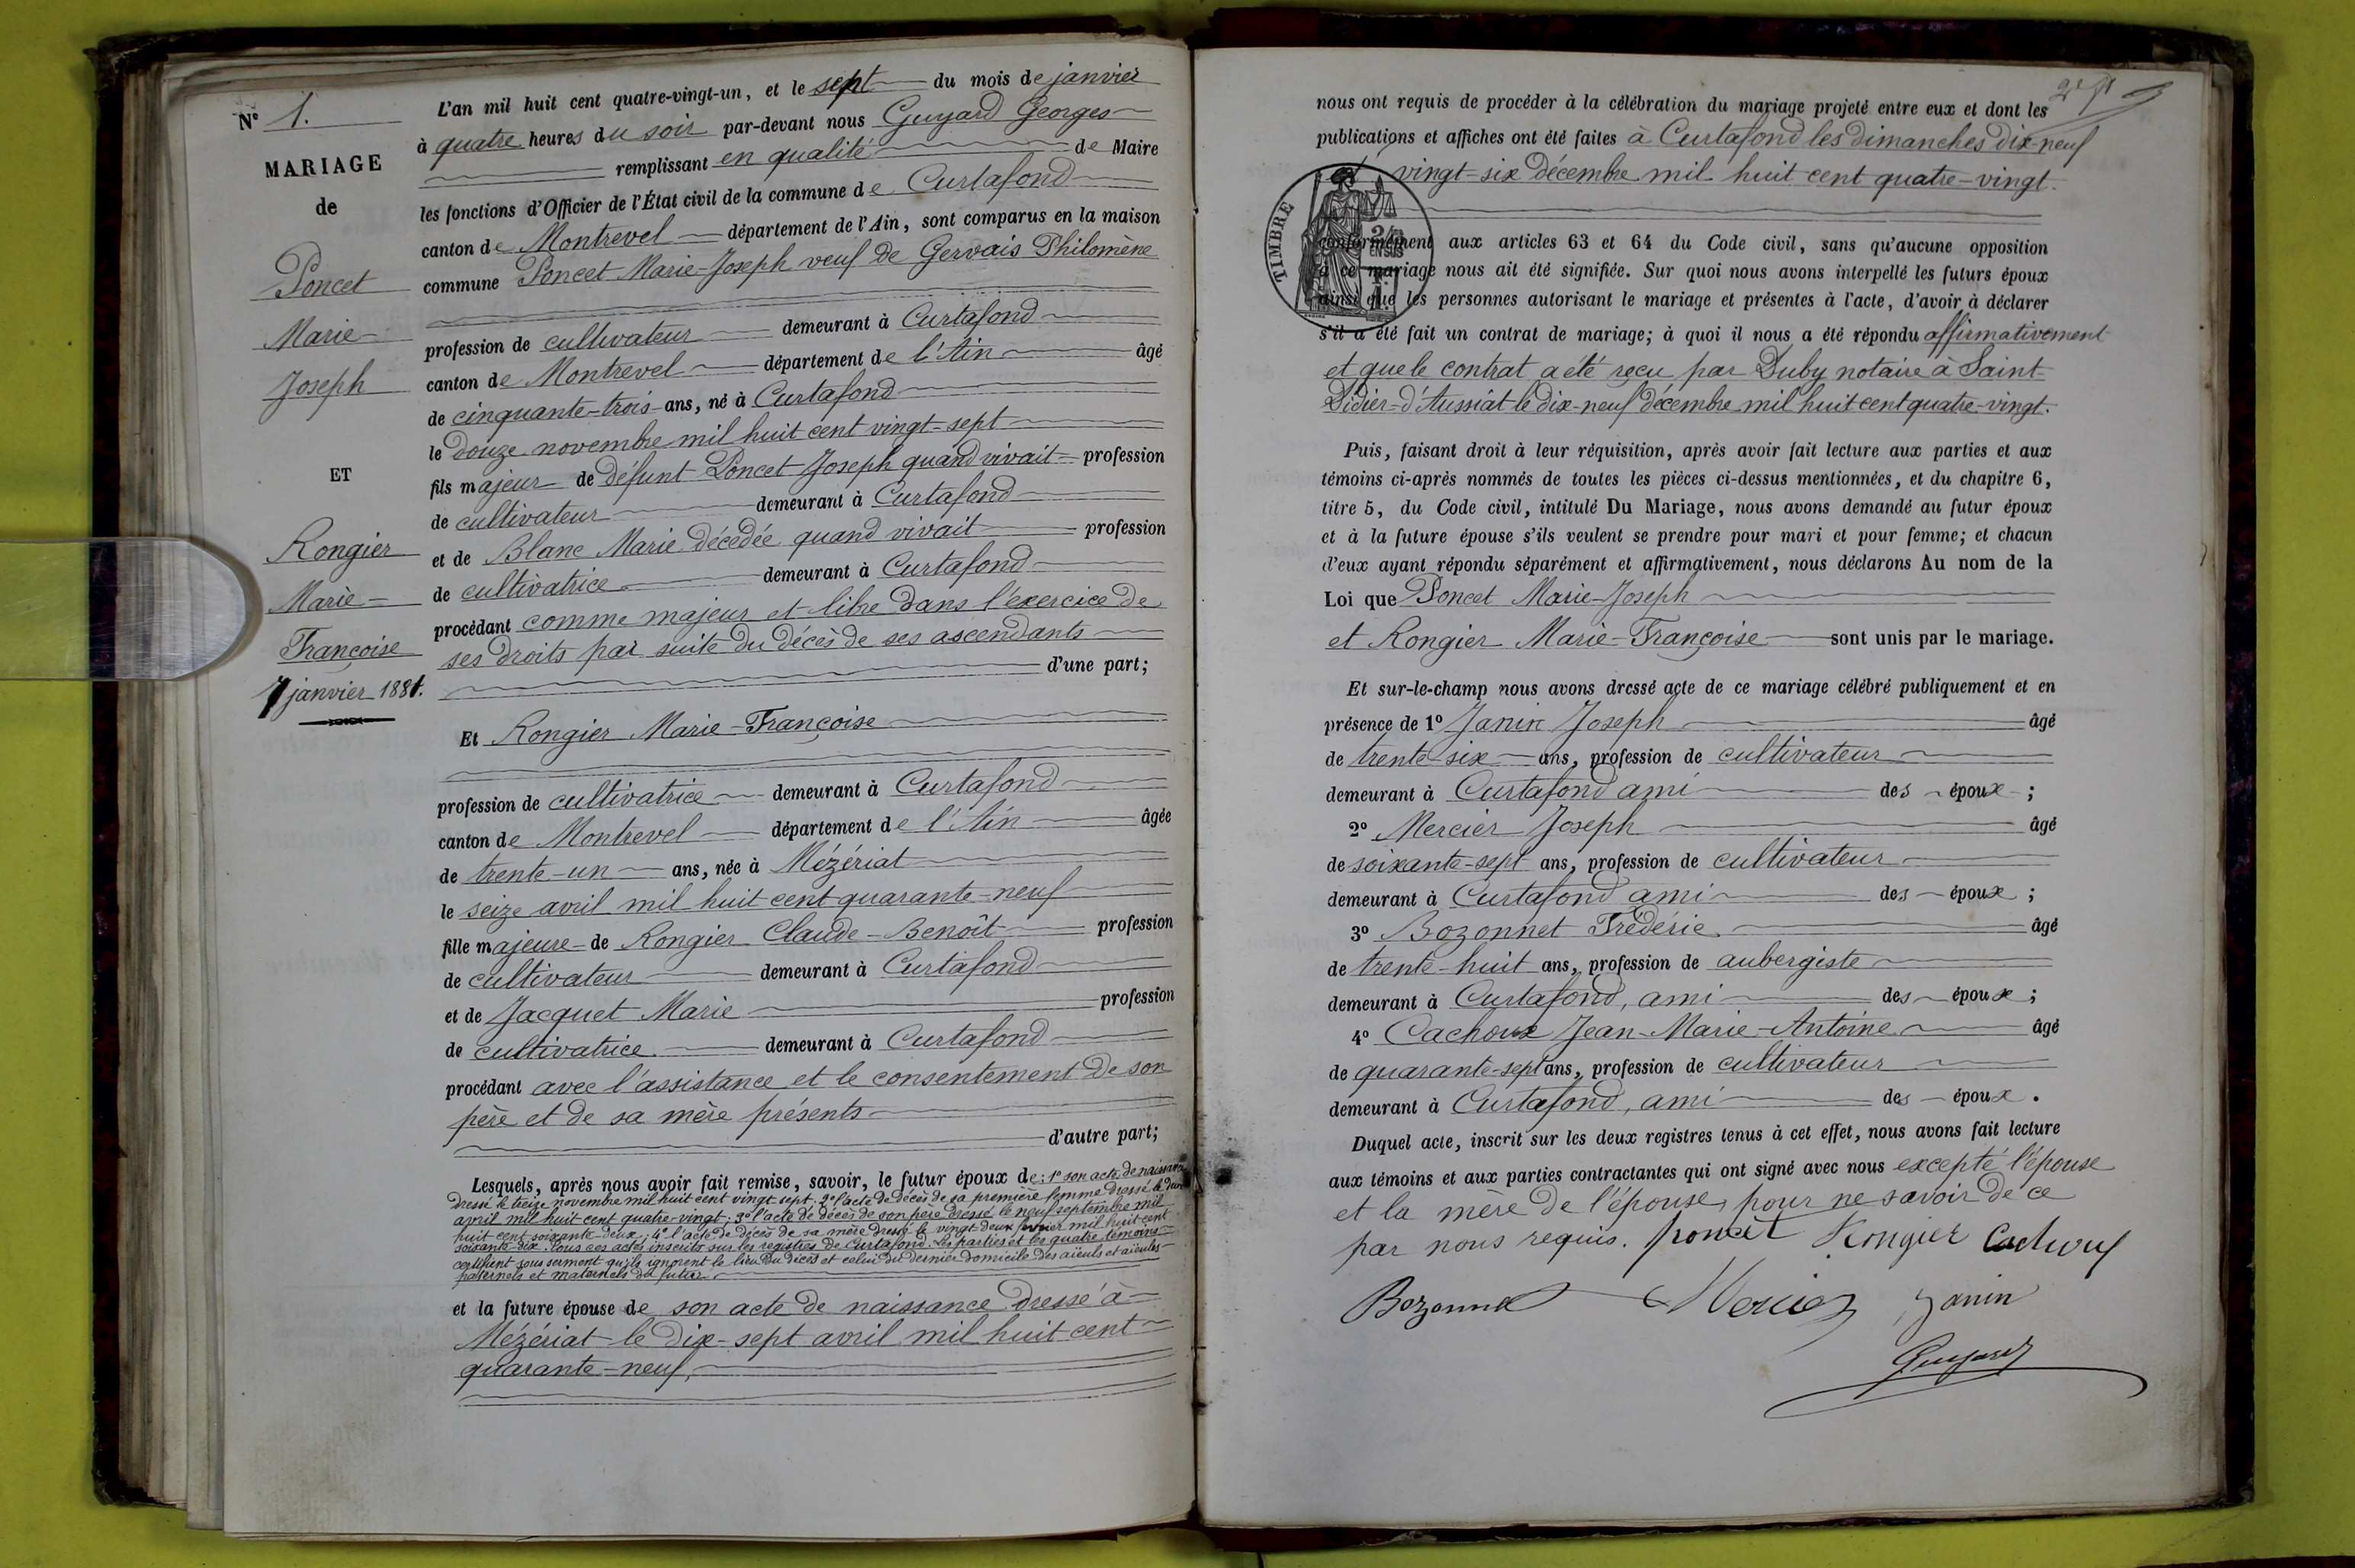 N° 1.
MARIAGE
de
Poncet
Marie
Joseph
ET
Rongier
Marie-
Françoise
7 janvier 1881.
L'an mil huit cent quatre-vingt-un, et le sept du mois de janvier
à quatre heures du soir par-devant nous Guyard Georges
remplissant en qualité de Maire
les fonctions d'Officier de l'État civil de la commune de Curtafond
canton de Montrevel département de l'Ain, sont comparus en la maison
commune Poncet Marie-Joseph veuf de Gervais Philomène
profession de cultivateur demeurant à Curtafond
canton de Montrevel département de l'Ain âgé
de cinquante-trois ans, né à Curtafond
le douze novembre mil huit cent vingt-sept
fils majeur de défunt Poncet Joseph quand vivait profession
de cultivateur demeurant à Curtafond
et de Blanc Marie décédée quand vivait profession
de cultivatrice demeurant à Curtafond
procédant comme majeur et libre dans l'exercice de
ses droits par suite du décès de ses ascendants
d'une part;
Et Rongier Marie-Françoise
profession de cultivatrice demeurant à Curtafond
canton de Montrevel département de l'Ain âgée
de trente-un ans, née à Mézériat
le seize avril mil huit cent quarante-neuf
fille majeure de Rongier Claude-Benoît profession
de cultivateur demeurant à Curtafond
et de Jacquet Marie profession
de cultivatrice demeurant à Curtafond
procédant avec l'assistance et le consentement de son
père et de sa mère présents
d'autre part;
Lesquels, après nous avoir fait remise, savoir, le futur époux de: 1° son acte de naissance
dressé le treize novembre mil huit cent vingt sept; 2° l'acte de décès de sa première femme dressé le deux
avril mil huit cent quatre-vingt; 3° l'acte de décès de son père dressé le neuf septembre mil
huit cent soixante-deux; 4° l'acte de décès de sa mère dressé le vingt deux février mil huit cent
soixante-dix. Tous ces actes inscrits sur les registres de Curtafond. Les parties et les quatre témoins
certifient sous serment qu'ils ignorent le lieu du décès et celui du dernier domicile des aïeuls et aïeules
paternels et maternels du futur.
et la future épouse de son acte de naissance dressé à
Mézériat le dix-sept avril mil huit cent
quarante-neuf,
nous ont requis de procéder à la célébration du mariage projeté entre eux et dont les
publications et affiches ont été faites à Curtafond les dimanches dix-neuf
et vingt-six décembre mil huit cent quatre-vingt.
TIMBRE
conformément aux articles 63 et 64 du Code civil, sans qu'aucune opposition
à ce mariage nous ait été signifiée. Sur quoi nous avons interpellé les futurs époux
ainsi que les personnes autorisant le mariage et présentes à l'acte, d'avoir à déclarer
s'il a été fait un contrat de mariage; à quoi il nous a été répondu affirmativement
et que le contrat a été reçu par Duby notaire à Saint-
Didier-d'Aussiat le dix-neuf décembre mil huit cent quatre-vingt.
Puis, faisant droit à leur réquisition, après avoir fait lecture aux parties et aux
témoins ci-après nommés de toutes les pièces ci-dessus mentionnées, et du chapitre 6,
titre 5, du Code civil, intitulé Du Mariage, nous avons demandé au futur époux
et à la future épouse s'ils veulent se prendre pour mari et pour femme; et chacun
d'eux ayant répondu séparément et affirmativement, nous déclarons Au nom de la
Loi que Poncet Marie-Joseph
et Rongier Marie-Françoise sont unis par le mariage.
Et sur-le-champ nous avons dressé acte de ce mariage célébré publiquement et en
présence de 1° Janin Joseph âgé
de trente six ans, profession de cultivateur
demeurant à Curtafond ami des époux ;
2° Mercier Joseph âgé
de soixante-sept ans, profession de cultivateur
demeurant à Curtafond ami des époux ;
3° Bozonnet Frédéric âgé
de trente-huit ans, profession de aubergiste
demeurant à Curtafond, ami des époux ;
4° Cachoux Jean-Marie-Antoine âgé
de quarante-sept ans, profession de cultivateur
demeurant à Curtafond, ami des époux .
Duquel acte, inscrit sur les deux registres tenus à cet effet, nous avons fait lecture
aux témoins et aux parties contractantes qui ont signé avec nous excepté l'épouse
et la mère de l'épouse, pour ne savoir de ce
par nous requis. poncet Rongier Cachoux
Bozonnet Mercier Janin
Guyard